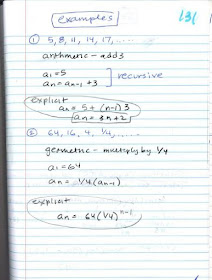 examples
131
① 5, 8, 11, 14, 17, ....
arithmetic - add 3
a₁ = 5
aₙ = aₙ₋₁ + 3 ] recursive
explicit
aₙ = 5 + (n-1)3
aₙ = 3n + 2
② 64, 16, 4, ¼, ....
geometric - multiply by ¼
a₁ = 64
aₙ = ¼(aₙ₋₁)
explicit
aₙ = 64(¼)ⁿ⁻¹